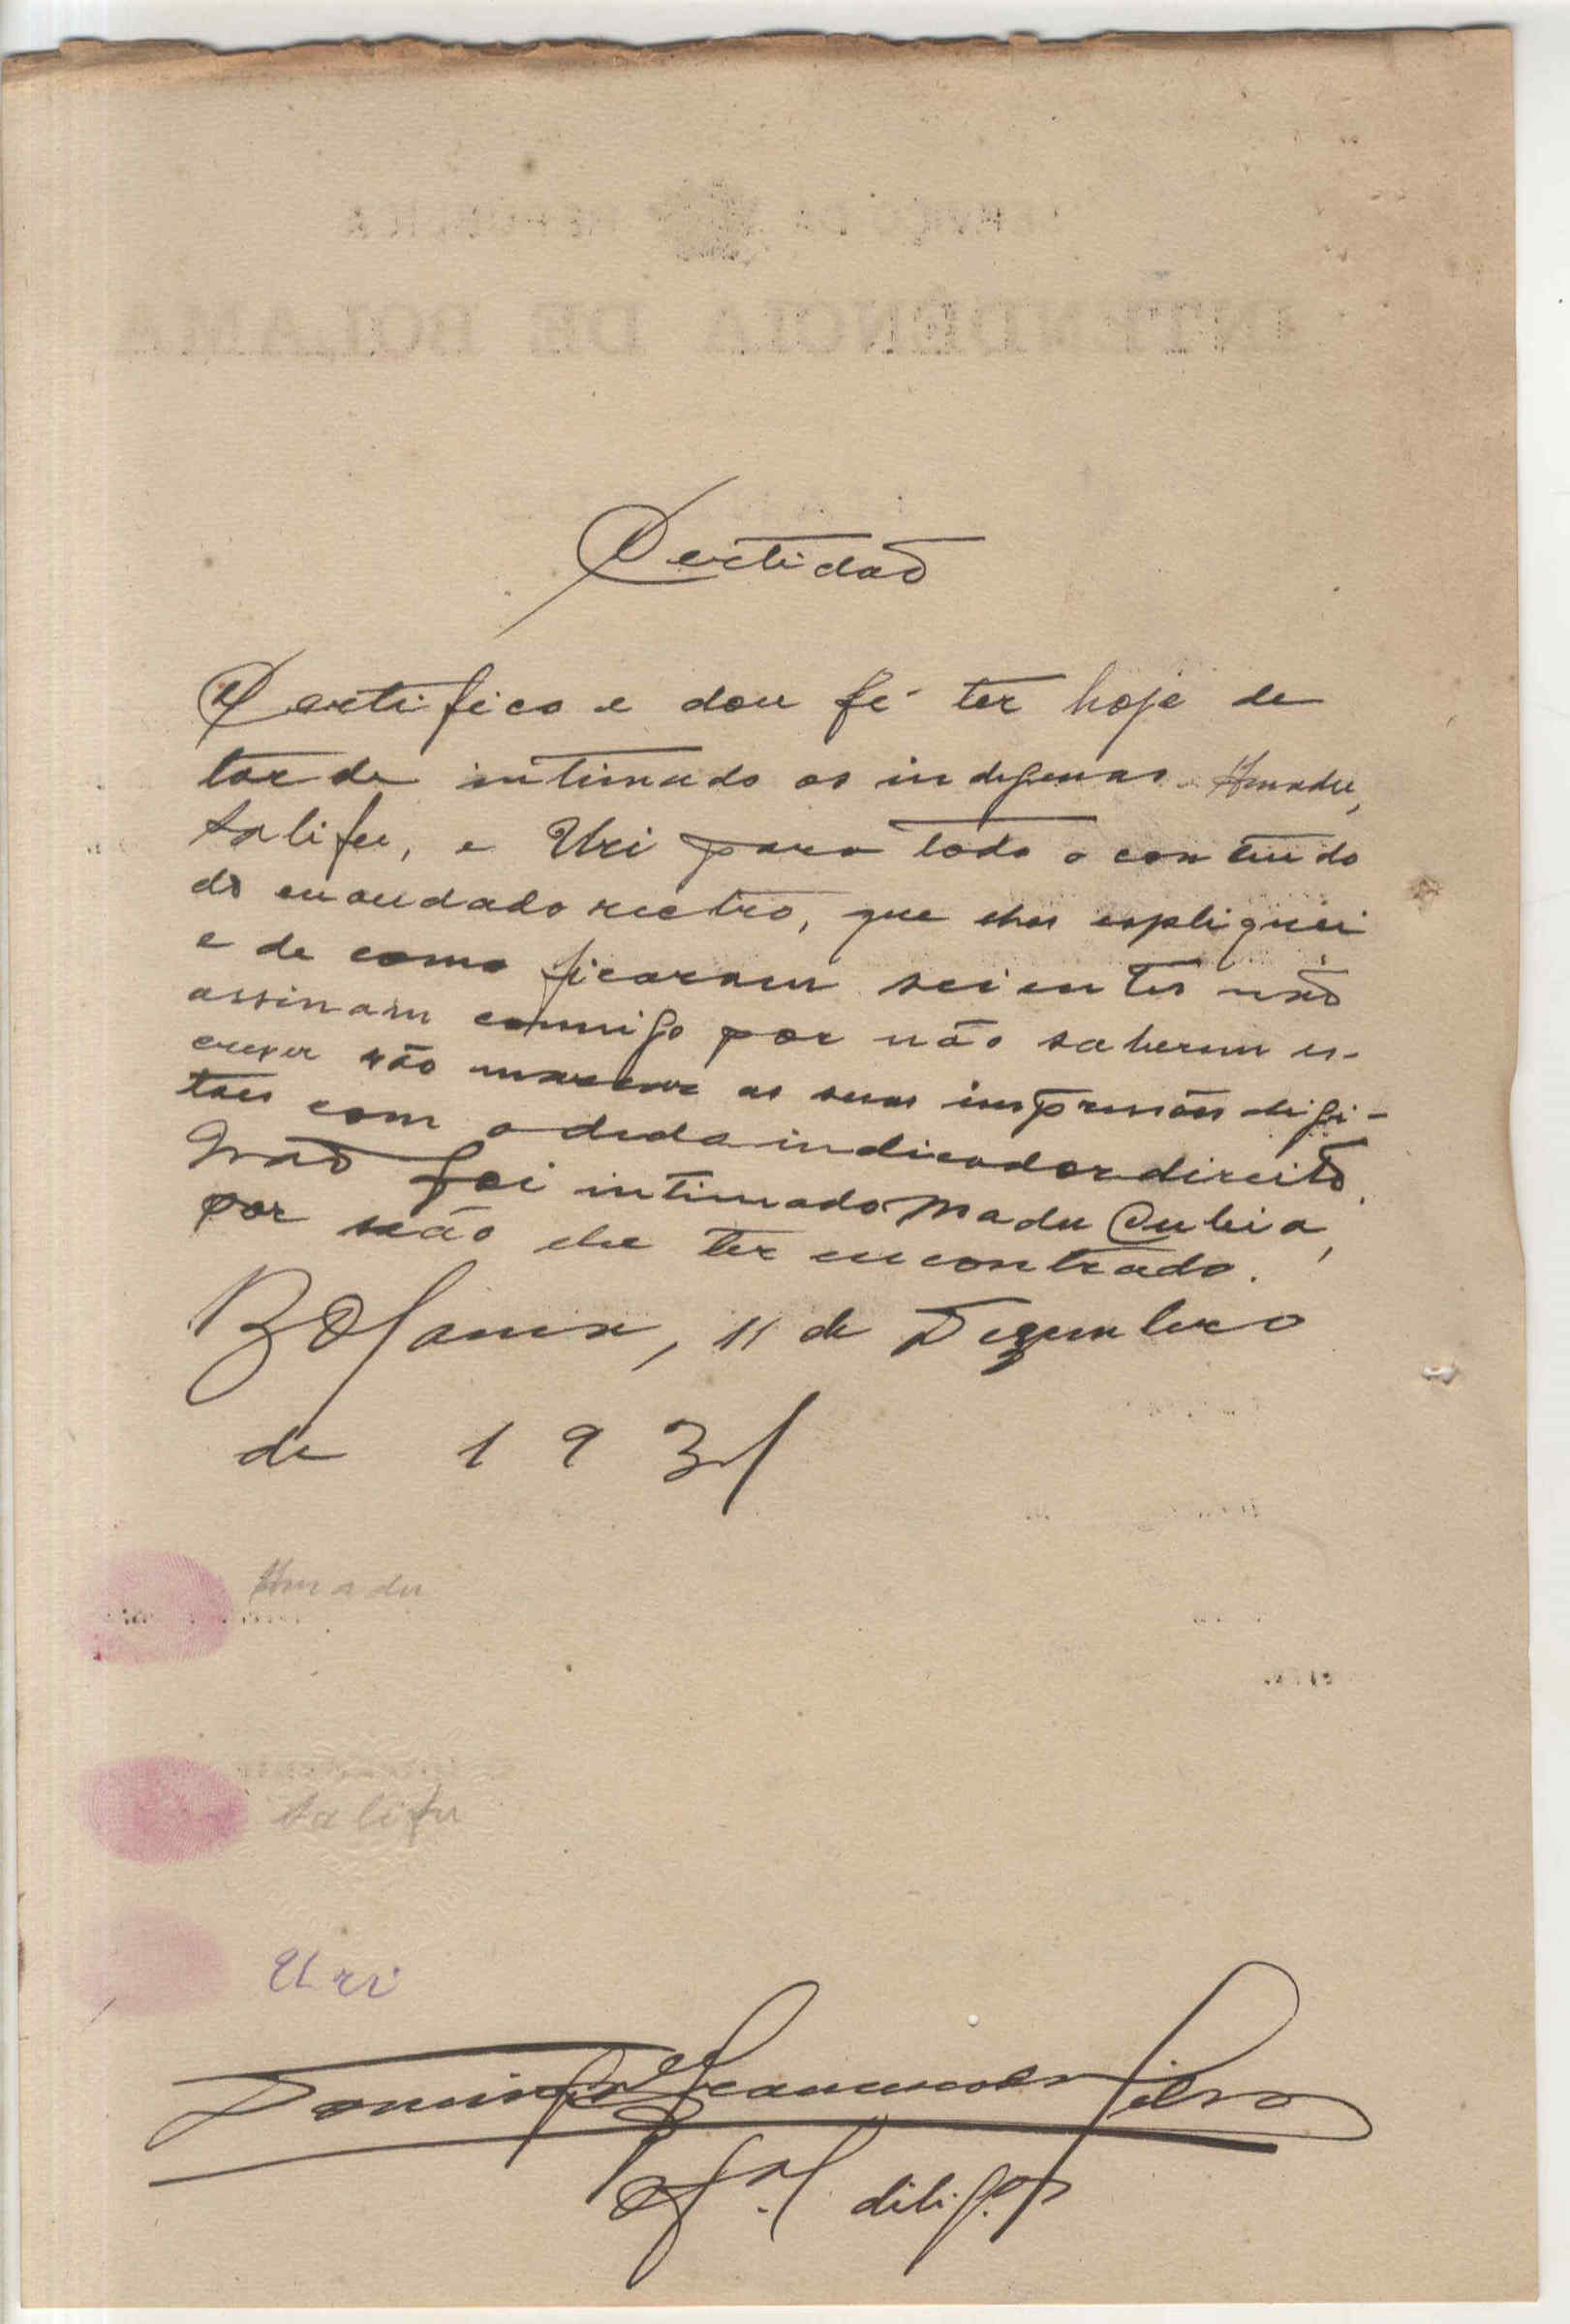 Certidão
Certifico e dou fé ter hoje de
tarde intimado os indigenas Amadu,
Salifu, e Uri para todo o conteudo
do mandado rectro, que lhes expliquei
e de como ficaram scientes não
assinam commigo por não saberem es-
crever vão marcar as suas impressões digi-
taes com o dedo indicador direito.
Não foi intimado Madu Cubia,
por não lhe ter encontrado.
Bolama, 11 de Dezembro
de 1931
Amadu
Salifu
Uri
Domingos Silva
dilig.as